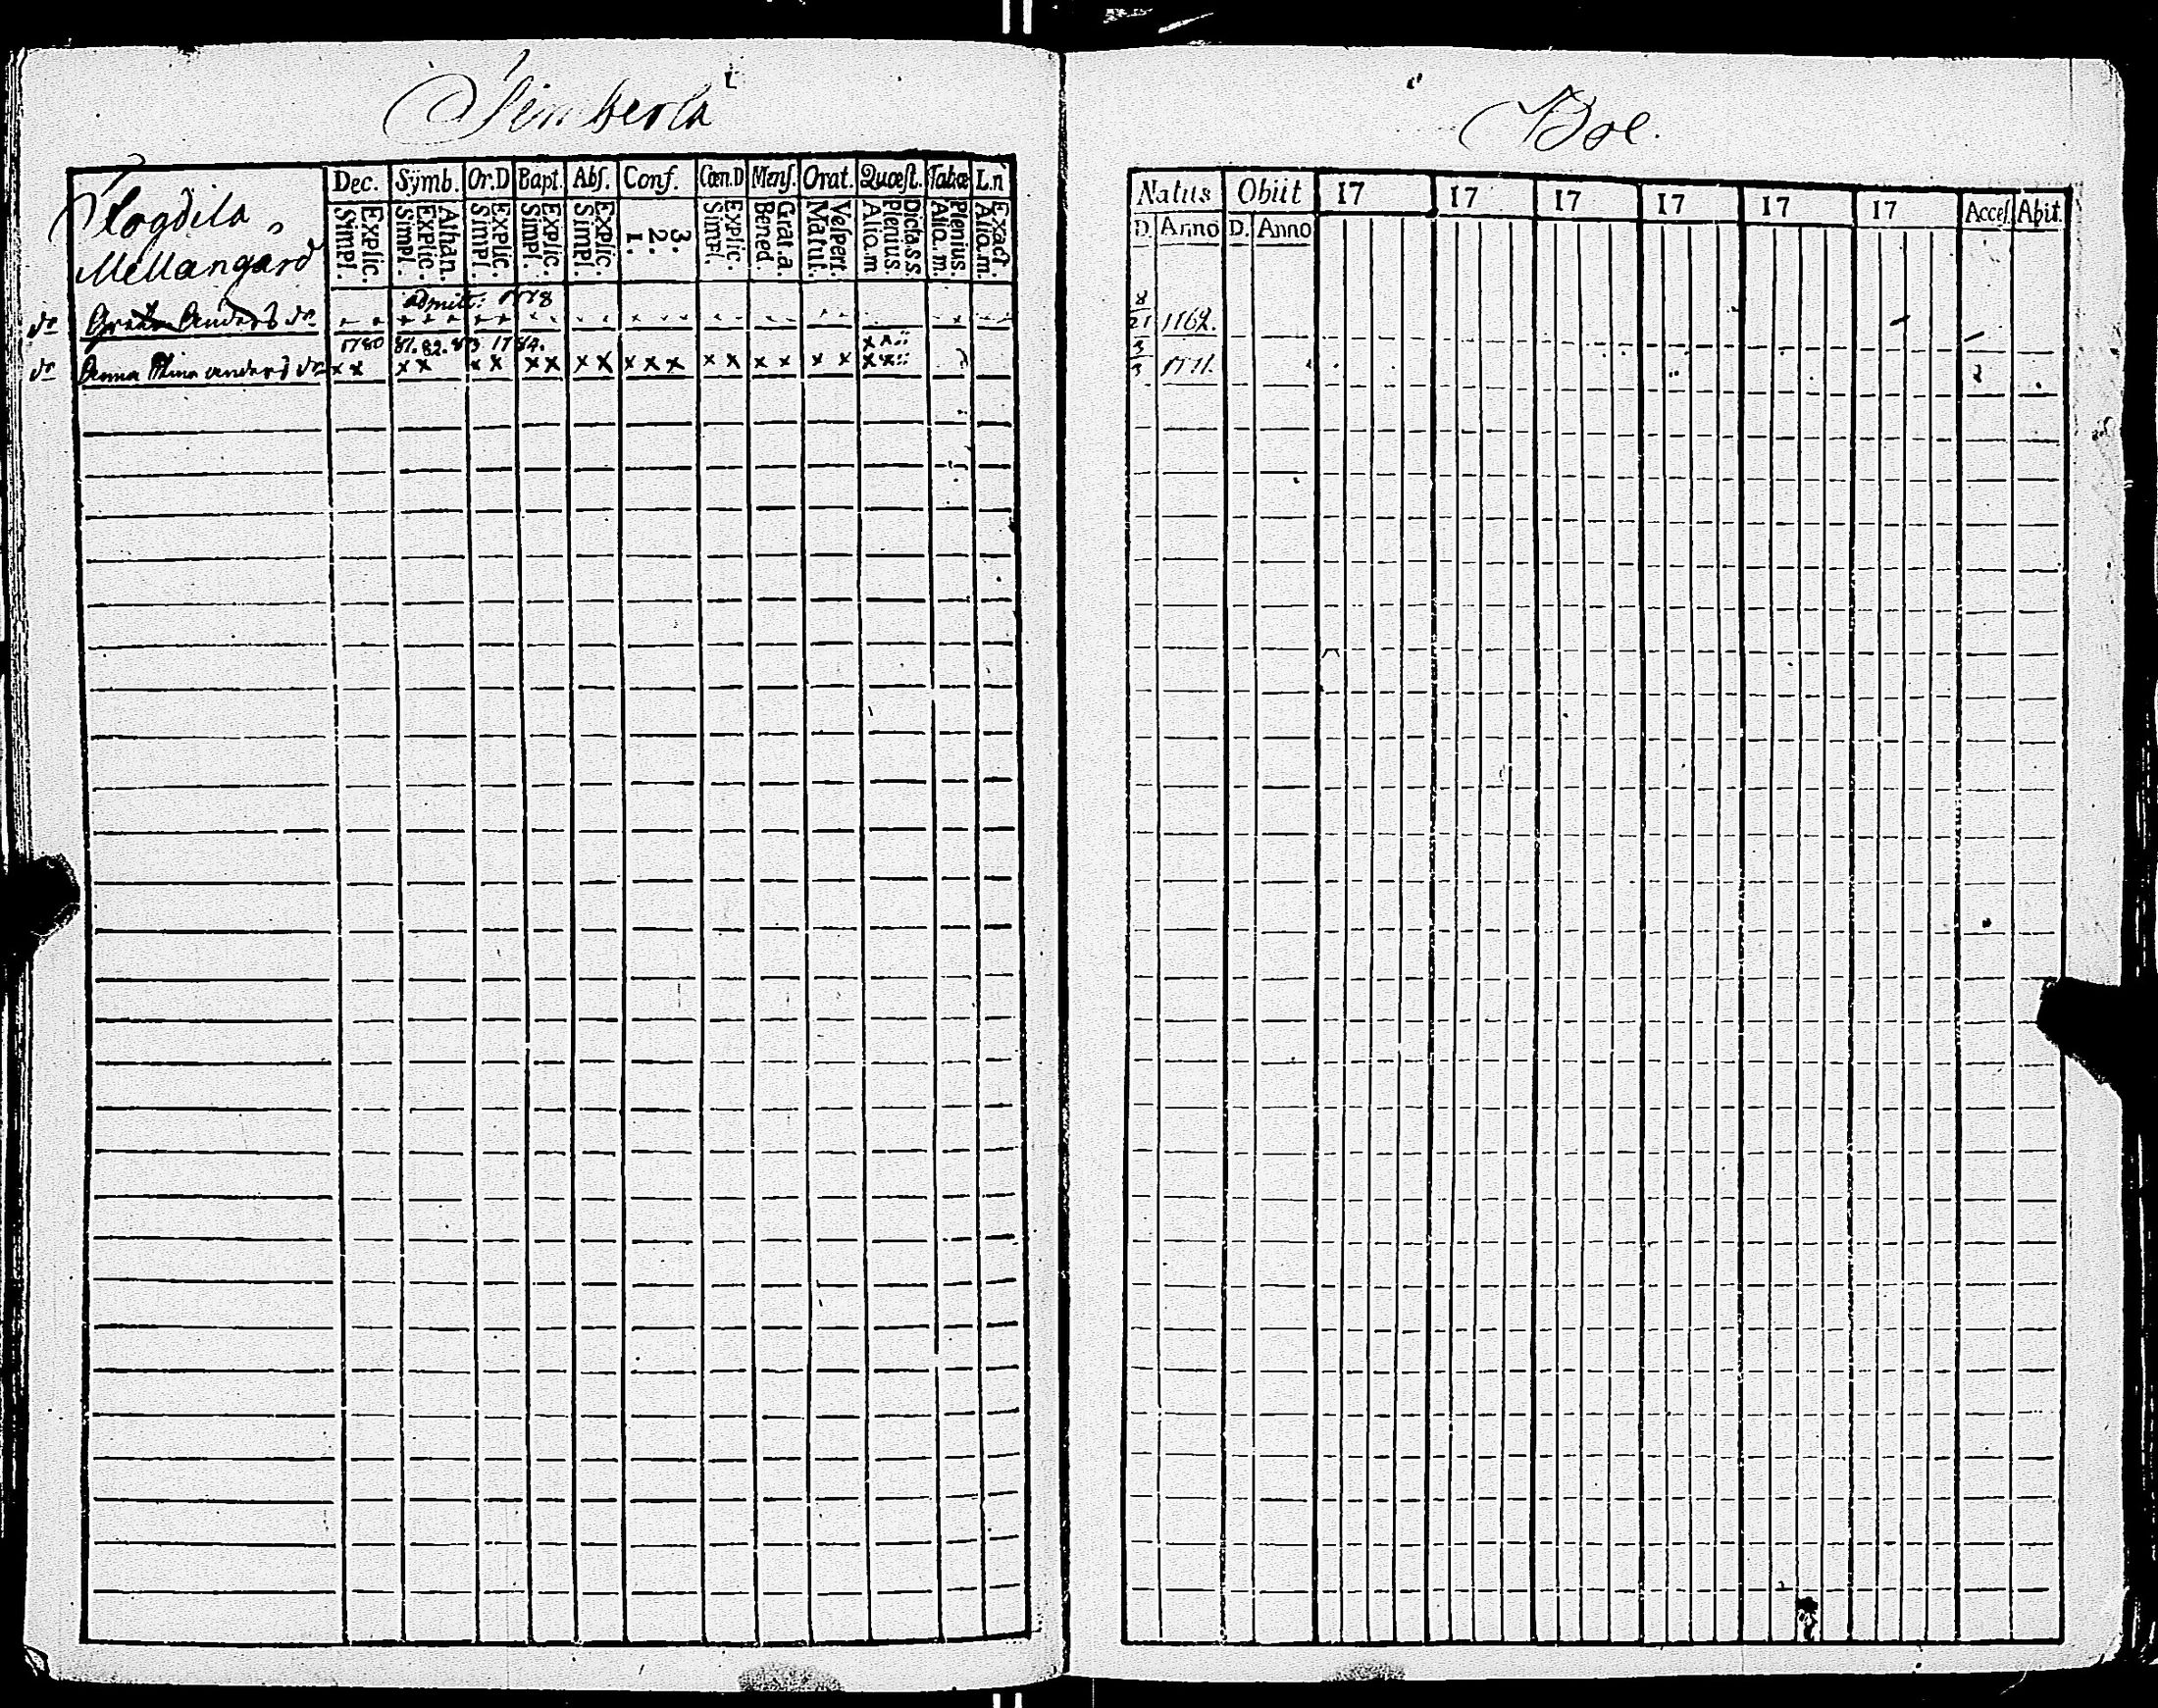 Simberla
Boe.
Flogdila,
Mellangard
Dec. Symb. Or.D Bapt. Abs. Conf. Cœn.D Mens. Orat. Quæst. Tabæ L.n
Simpl. Explic. Simpl. Explic. Athan. Simpl. Explic. Simpl. Explic. Simpl. Explic. 1. 2. 3. Simpl. Explic. Bened. Grat.a. Matut. Vespert. Alio.m Plenius. Dicta.s.s Alio.m. Plenius. Alio.m. Exact.
Natus Obiit 17 17 17 17 17 17 Acces. Abit.
D. Anno D. Anno
admitt: 1778
dr Greta Anders dr
8
21 1762.
1780 81. 82. 83 1784.
dr Anna Stina anders dr x x x x x x x x x x x x x x x x x x x
3
3 1771.